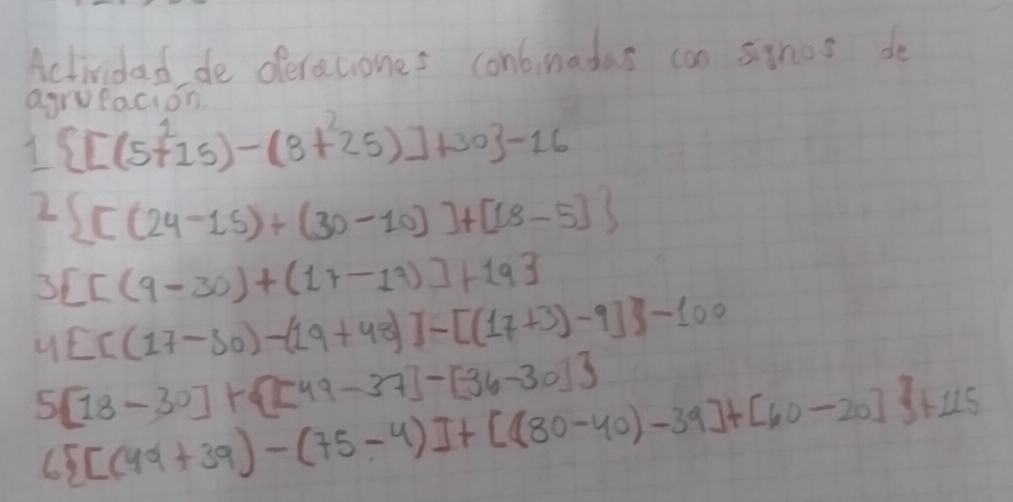 Actividad de operaciones conbinadas con signos de
agrupación.
1 {[(5+15)-(8+25)]+30}-16
2 {[(24-15)+(30-10)]+[18-5]}
3 {[(9-30)+(17-19)]+19}
4 {[(17-30)-(19+48)]-[(17+3)-9]}-100
5 [18-30]+{[49-37]-[36-30]}
6 {[(49+39)-(75-4)]+[(80-40)-39]+[60-20]}+115